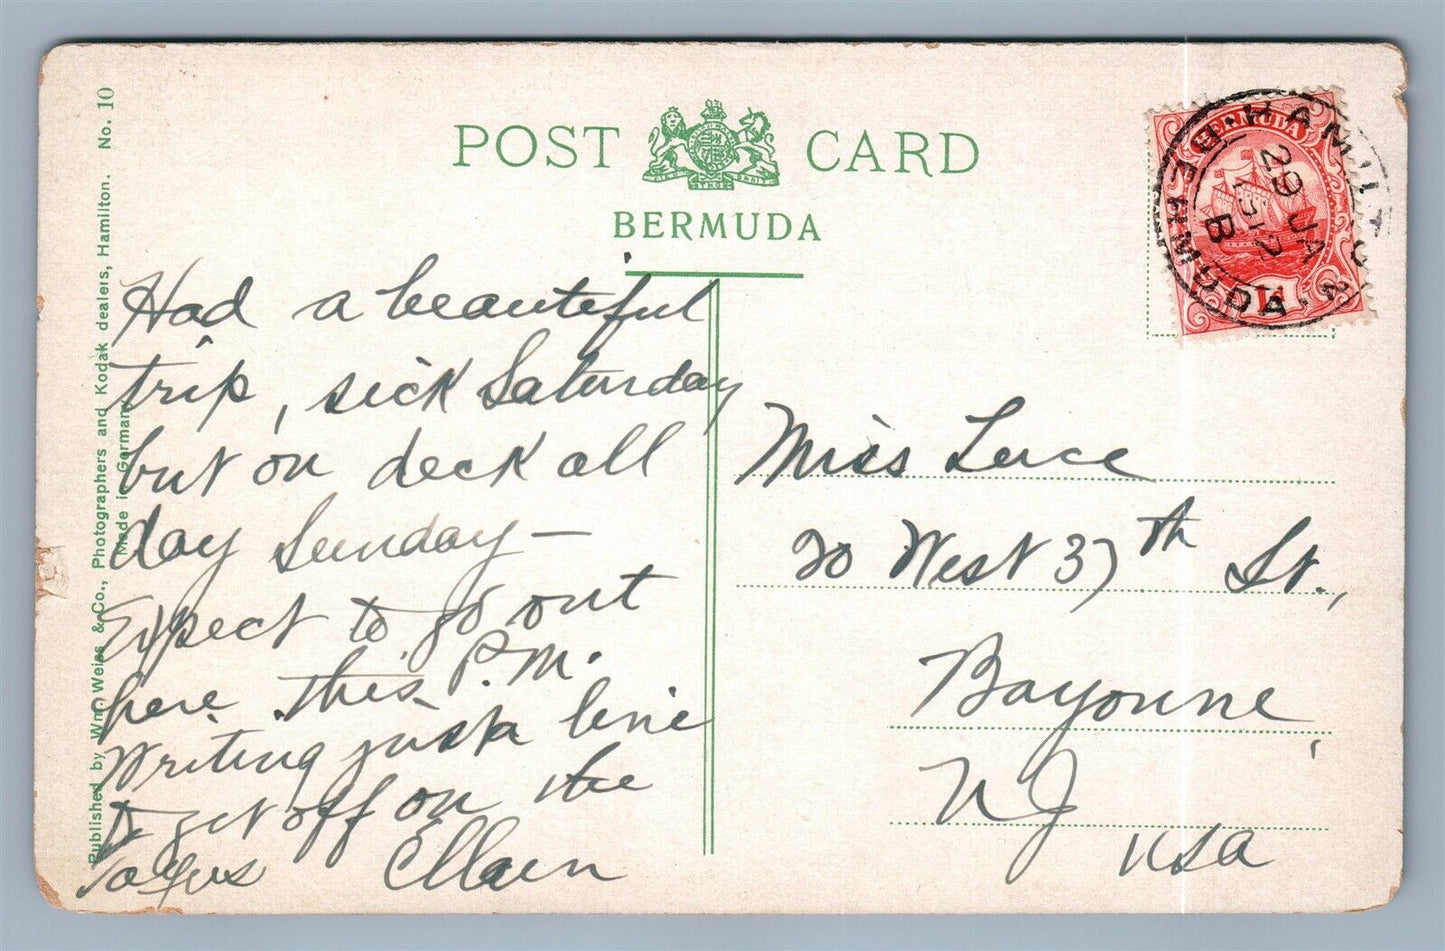 POST CARD
BERMUDA
Published by Wm. Weiss & Co., Photographers and Kodak dealers, Hamilton. No. 10
Made in Germany
Had a beautiful
trip, sick Saturday
but on deck all
day Sunday —
Expect to go out
here this P.M.
Writing just a line
to get off on the
HAMILTON
BERMUDA
29 JA
12
B
BERMUDA
1d
Miss Luce
20 West 37th St.,
Bayonne,
NJ
USA